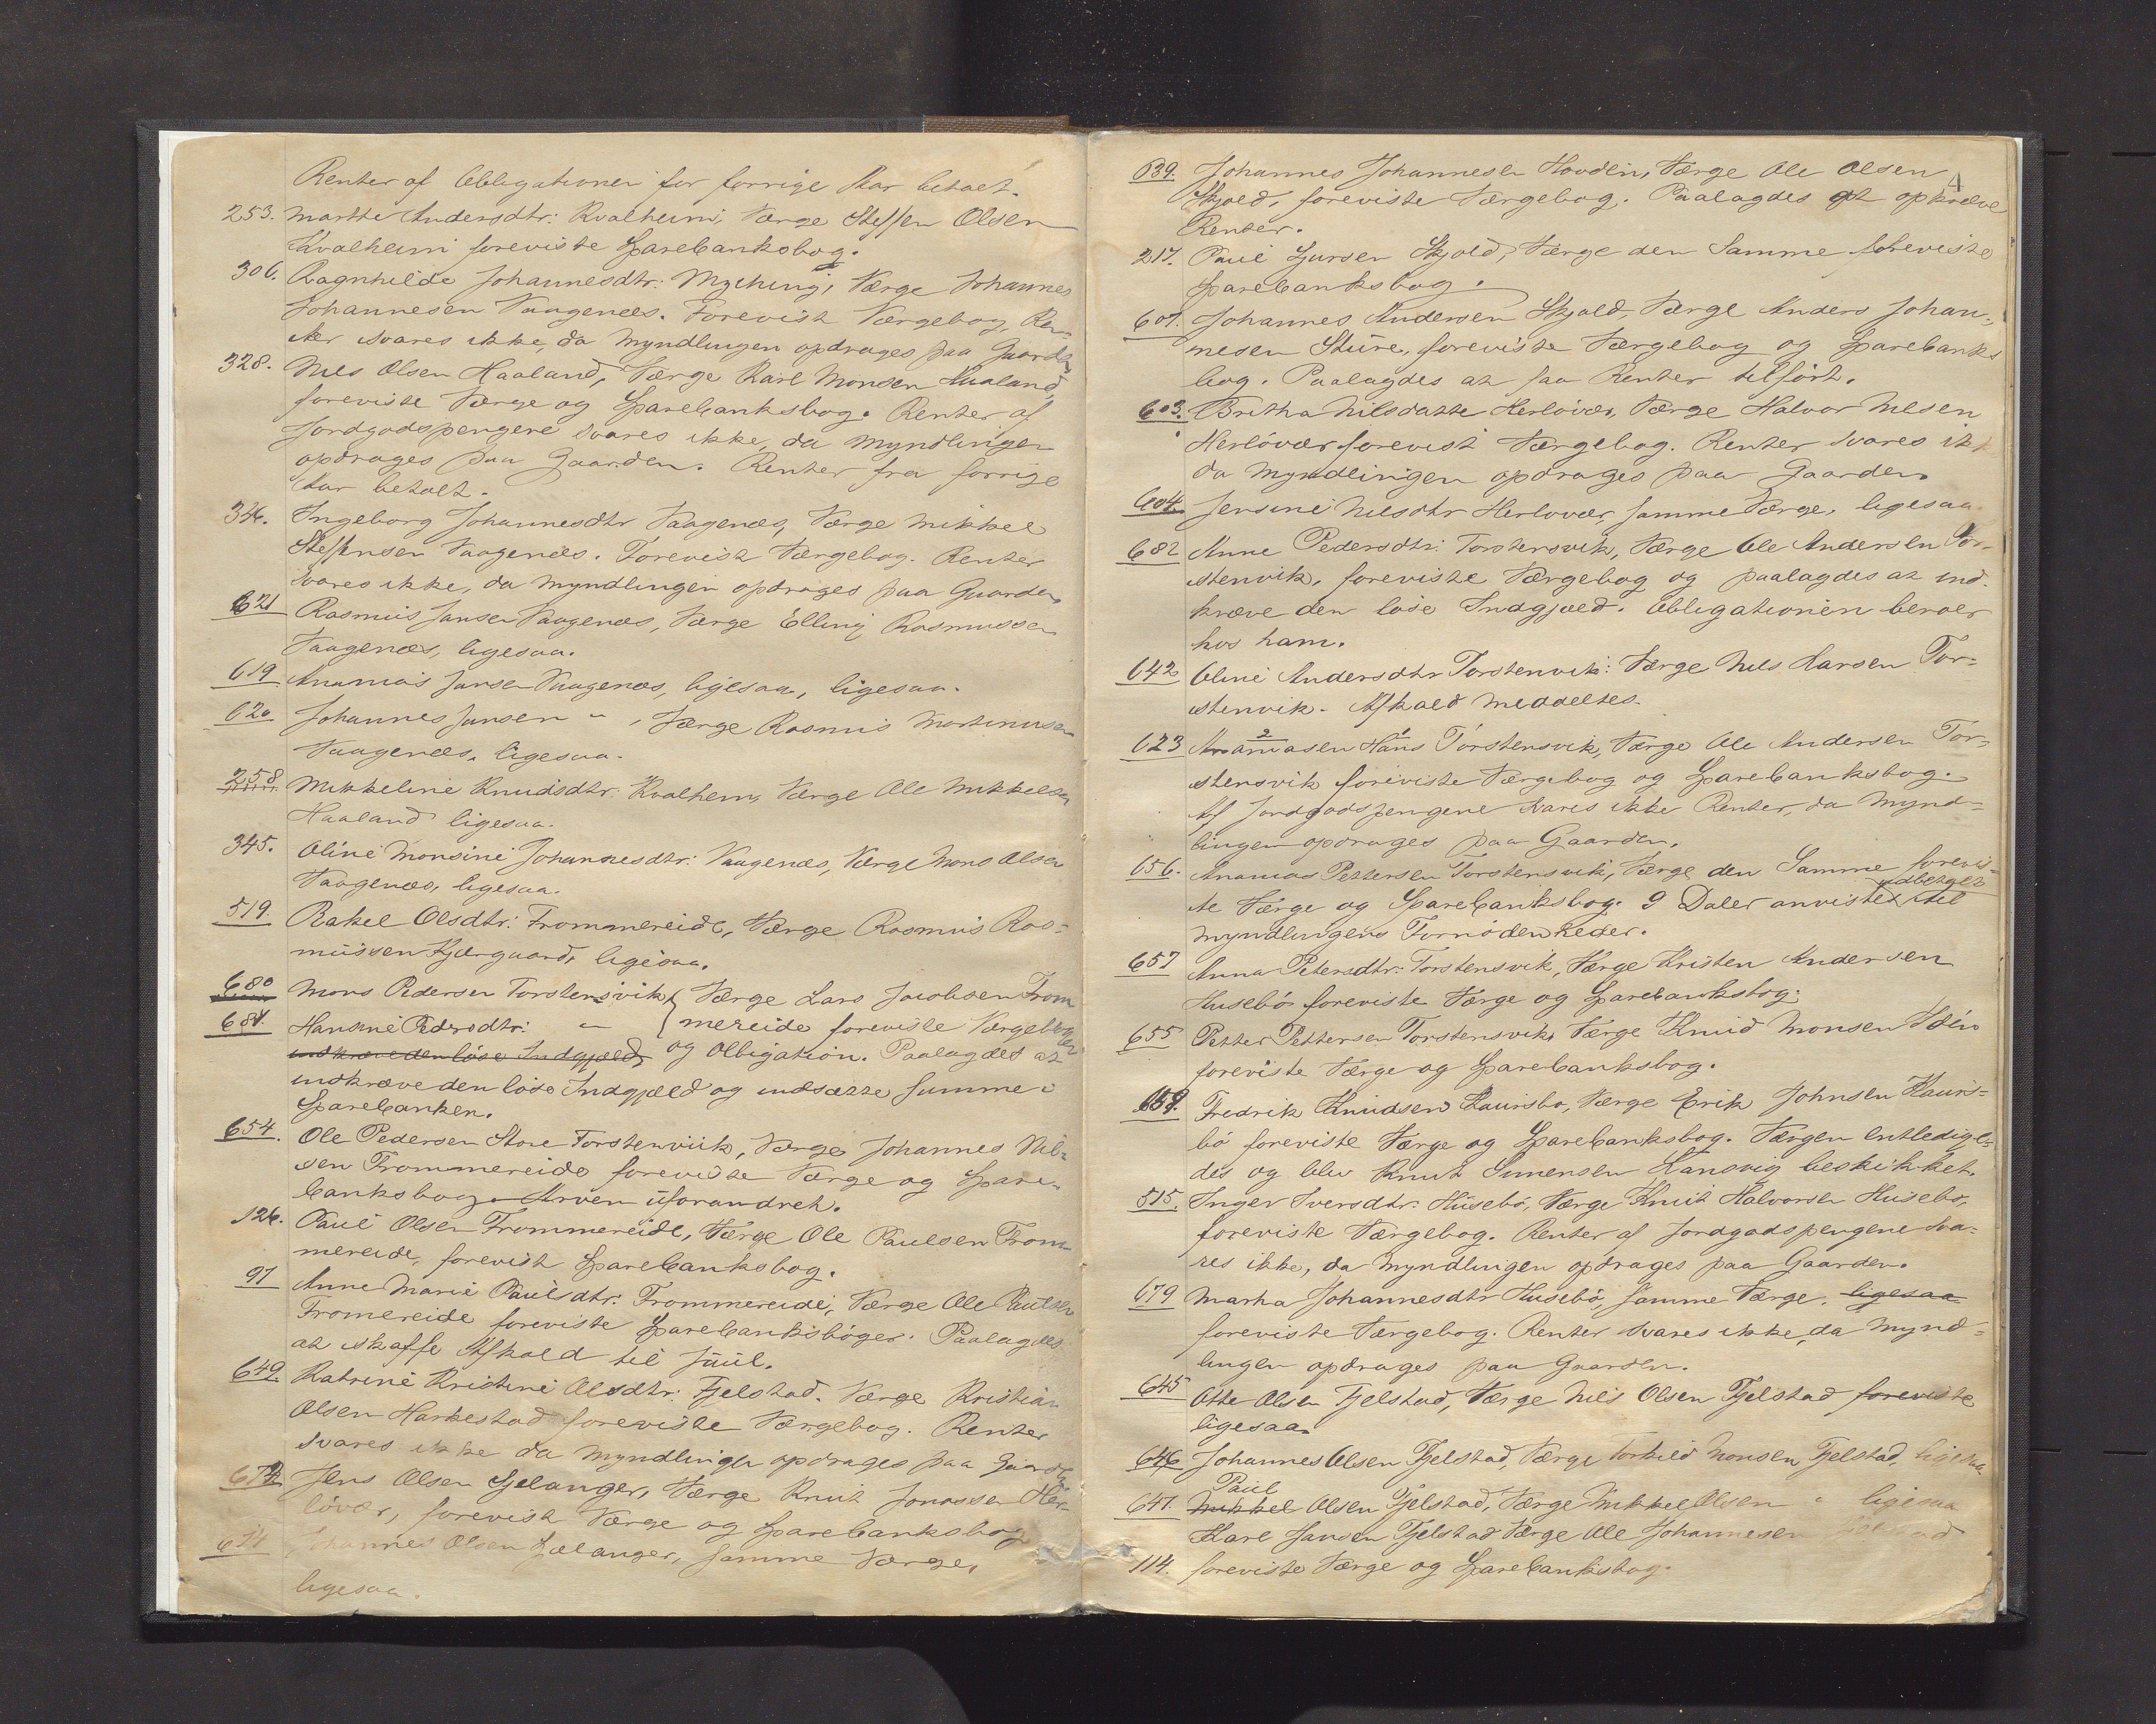 Renter af Obligationen for forrige Aar betalt.
253. Marthe Andersdtr: Kvalheim, Værge Steffen Olsen
Kvalheim foreviste Sparebanksbog.
306. Ragnhilde Johannesdtr: Myching, Værge Johannes
Johannesen Vaagenæs. Forevist Værgebog, Ren-
ter svares ikke, da Myndlingen opdrages paa Gaarden
328. Nils Olsen Haaland, Værge Karl Monsen Haaland,
foreviste Værge og Sparebanksbog. Renter af
Jordgodspengene svares ikke, da Myndlingen
opdrages paa Gaarden. Renter fra forrige
Aar betalt.
346. Ingeborg Johannesdtr Vaagenæs, Værge Mikkel
Steffensen Vaagenæs. Forevist Værgebog. Renter
svares ikke, da Myndlingen opdrages paa Gaarden
621 Rasmus Jansen Vaagenæs, Værge Elling Rasmussen
Vaagenæs, ligesaa.
619 Ananias Jansen Vaagenæs, ligesaa, ligesaa.
620 Johannes Jansen " , Værge Rasmus Martinusen
Vaagenæs, ligesaa.
258 Mikkeline Knudsdtr: Kvalheim, Værge Ole Mikkelsen
Haaland ligesaa.
345. Oline Monsine Johannesdtr: Vaagenæs, Værge Mons Olsen
Vaagenæs, ligesaa.
519. Rakel Olsdtr: Frommereide, Værge Rasmus Ras-
mussen Kjærgaard, ligesaa.
680 Mons Pedersen Torstensvik, } Værge Lars Jacobsen From
681. Hansine Pedersdtr: " } mereide foreviste Værgebøger
indkræve den løse Indgjæld, og Obligation. Paalagdes at
indkræve den løse Indgjæld og indsætte Summe i
Sparebanken.
654. Ole Pedersen Store Torstenviik, Værge Johannes Nil-
sen Frommereide foreviste Værge og Spare-
banksbog. Arven uforandret.
126. Paul Olsen Frommereide, Værge Ole Paulsen From-
mereide, forevist Sparebanksbog.
97 Anne Marie Paulsdtr: Frommereide, Værge Ole Paulsen
Fromereide foreviste Sparebanksbøger. Paalagdes
at skaffe Afkald til Juul.
649. Katrine Kristine Olsdtr: Fjelstad. Værge Kristian
Olsen Harkestad foreviste Værgebog. Renter
svares ikke da Myndlingen opdrages paa Gaarden
673 Jens Olsen Sjelanger, Værge Knut Jonassen Her-
løvær, forevist Værge og Sparebanksbog
674 Johannes Olsen Sælanger, Samme Værge,
ligesaa.
4
639. Johannes Johannesen Hovden, Værge Ole Olsen
Skjold, foreviste Værgebog. Paalagdes at opkræve
Renter.
217. Paul Sjursen Skjold, Værge den Samme foreviste
Sparebanksbog.
607. Johannes Andersen Skjold, Værge Anders Johan-
nesen Sture, foreviste Værgebog og Sparebanks
bog. Paalagdes at faa Renter tilført.
603. Britha Nilsdatte Herløvær, Værge Halvor Nilsen
Herløvær forevist Værgebog. Renter svares ikke
da Myndlingen opdrages paa Gaarden.
604. Jensine Nilsdtr Herløvær, Samme Værge, ligesaa.
682 Anne Pedersdtr: Torstensvik, Værge Ole Andersen Tor-
stenvik, foreviste Værgebog og paalagdes at ind-
kræve den løse Indgjæld. Obligationen beroer
hos ham.
642 Oline Andersdtr Torstenvik: Værge Nils Hansen Tor-
stenvik. Afkald meddeltes.
623 Ananiasen Hans Torstensvik, Værge Ole Andersen Tor-
stensvik foreviste Værgebog og Sparebanksbog.
Af Jordgodspengene svares ikke Renter, da Mynd-
lingen opdrages paa Gaarden.
656. Ananias Pettersen Torstensvik, Værge den Samme forevis-
te Værge og Sparebanksbog. 9 Daler anvistes udbetalt til
Myndlingens Fornødenheder.
657 Anna Petersdtr: Torstensvik, Værge Kristen Andersen
Husebø foreviste Værge og Sparebanksbog.
655 Petter Pettersen Torstensvik, Værge Knud Monsen
foreviste Værge og Sparebanksbog.
658. Fredrik Knudsen Hauvsbo, Værge Erik Johnsen Hauvs-
bø foreviste Værge og Sparebanksbog. Værgen entledige-
des og blev Knut Simensen Hansvig beskikket.
515. Inger Iversdtr: Husebø, Værge Knut Halvorsen Husebø,
foreviste Værgebog. Renter af Jordgodspengene sva-
res ikke, da Myndlingen opdrages paa Gaarden.
679 Marha Johannesdtr Husebø, Samme Værge, ligesaa
foreviste Værgebog. Renter svares ikke, da Mynd-
lingen opdrages paa Gaarden.
645 Otte Olsen Fjelstad, Værge Nils Olsen Fjelstad foreviste
ligesaa
646 Johannes Olsen Fjelstad, Værge Torkild Monsen Fjelstad, ligesaa
Paul
647. Mikkel Olsen Fjelstad, Værge Mikkel Olsen " ligesaa
Karl Jansen Fjelstad Værge Ole Johannesen Fjelstad
114. foreviste Værge og Sparebanksbog.